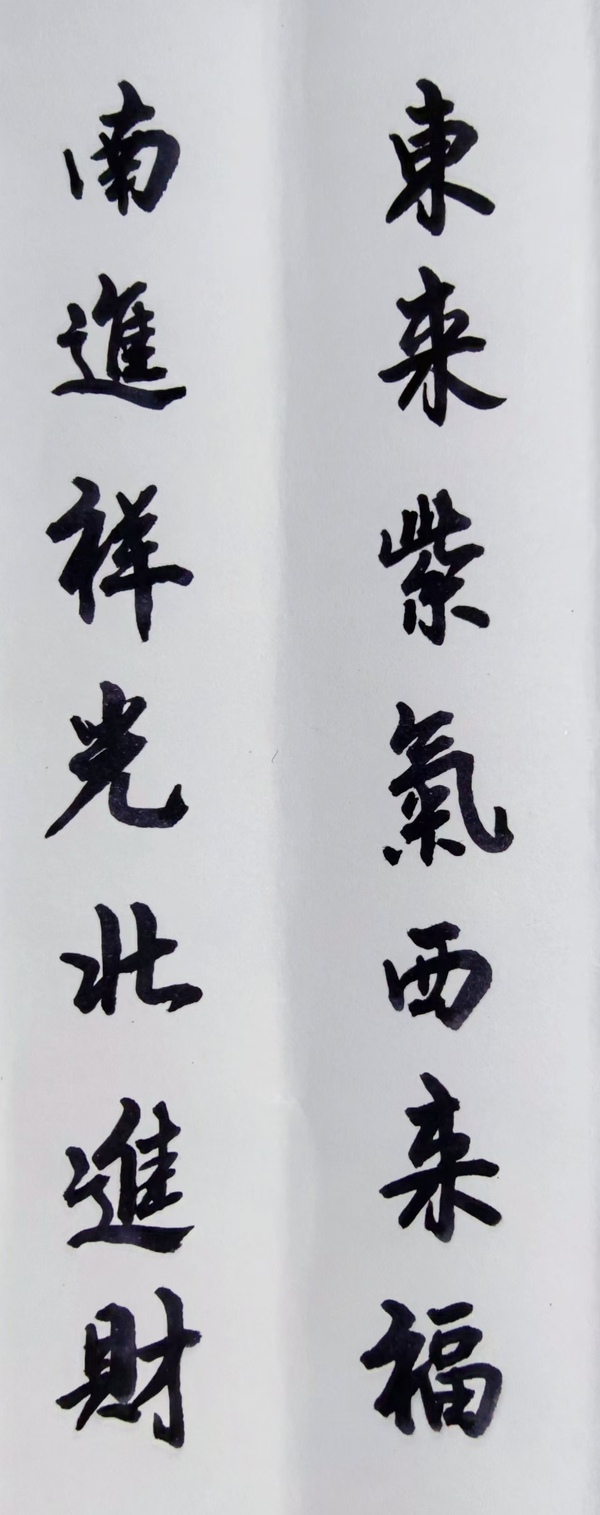 東来紫氣西来福
南進祥光北進財